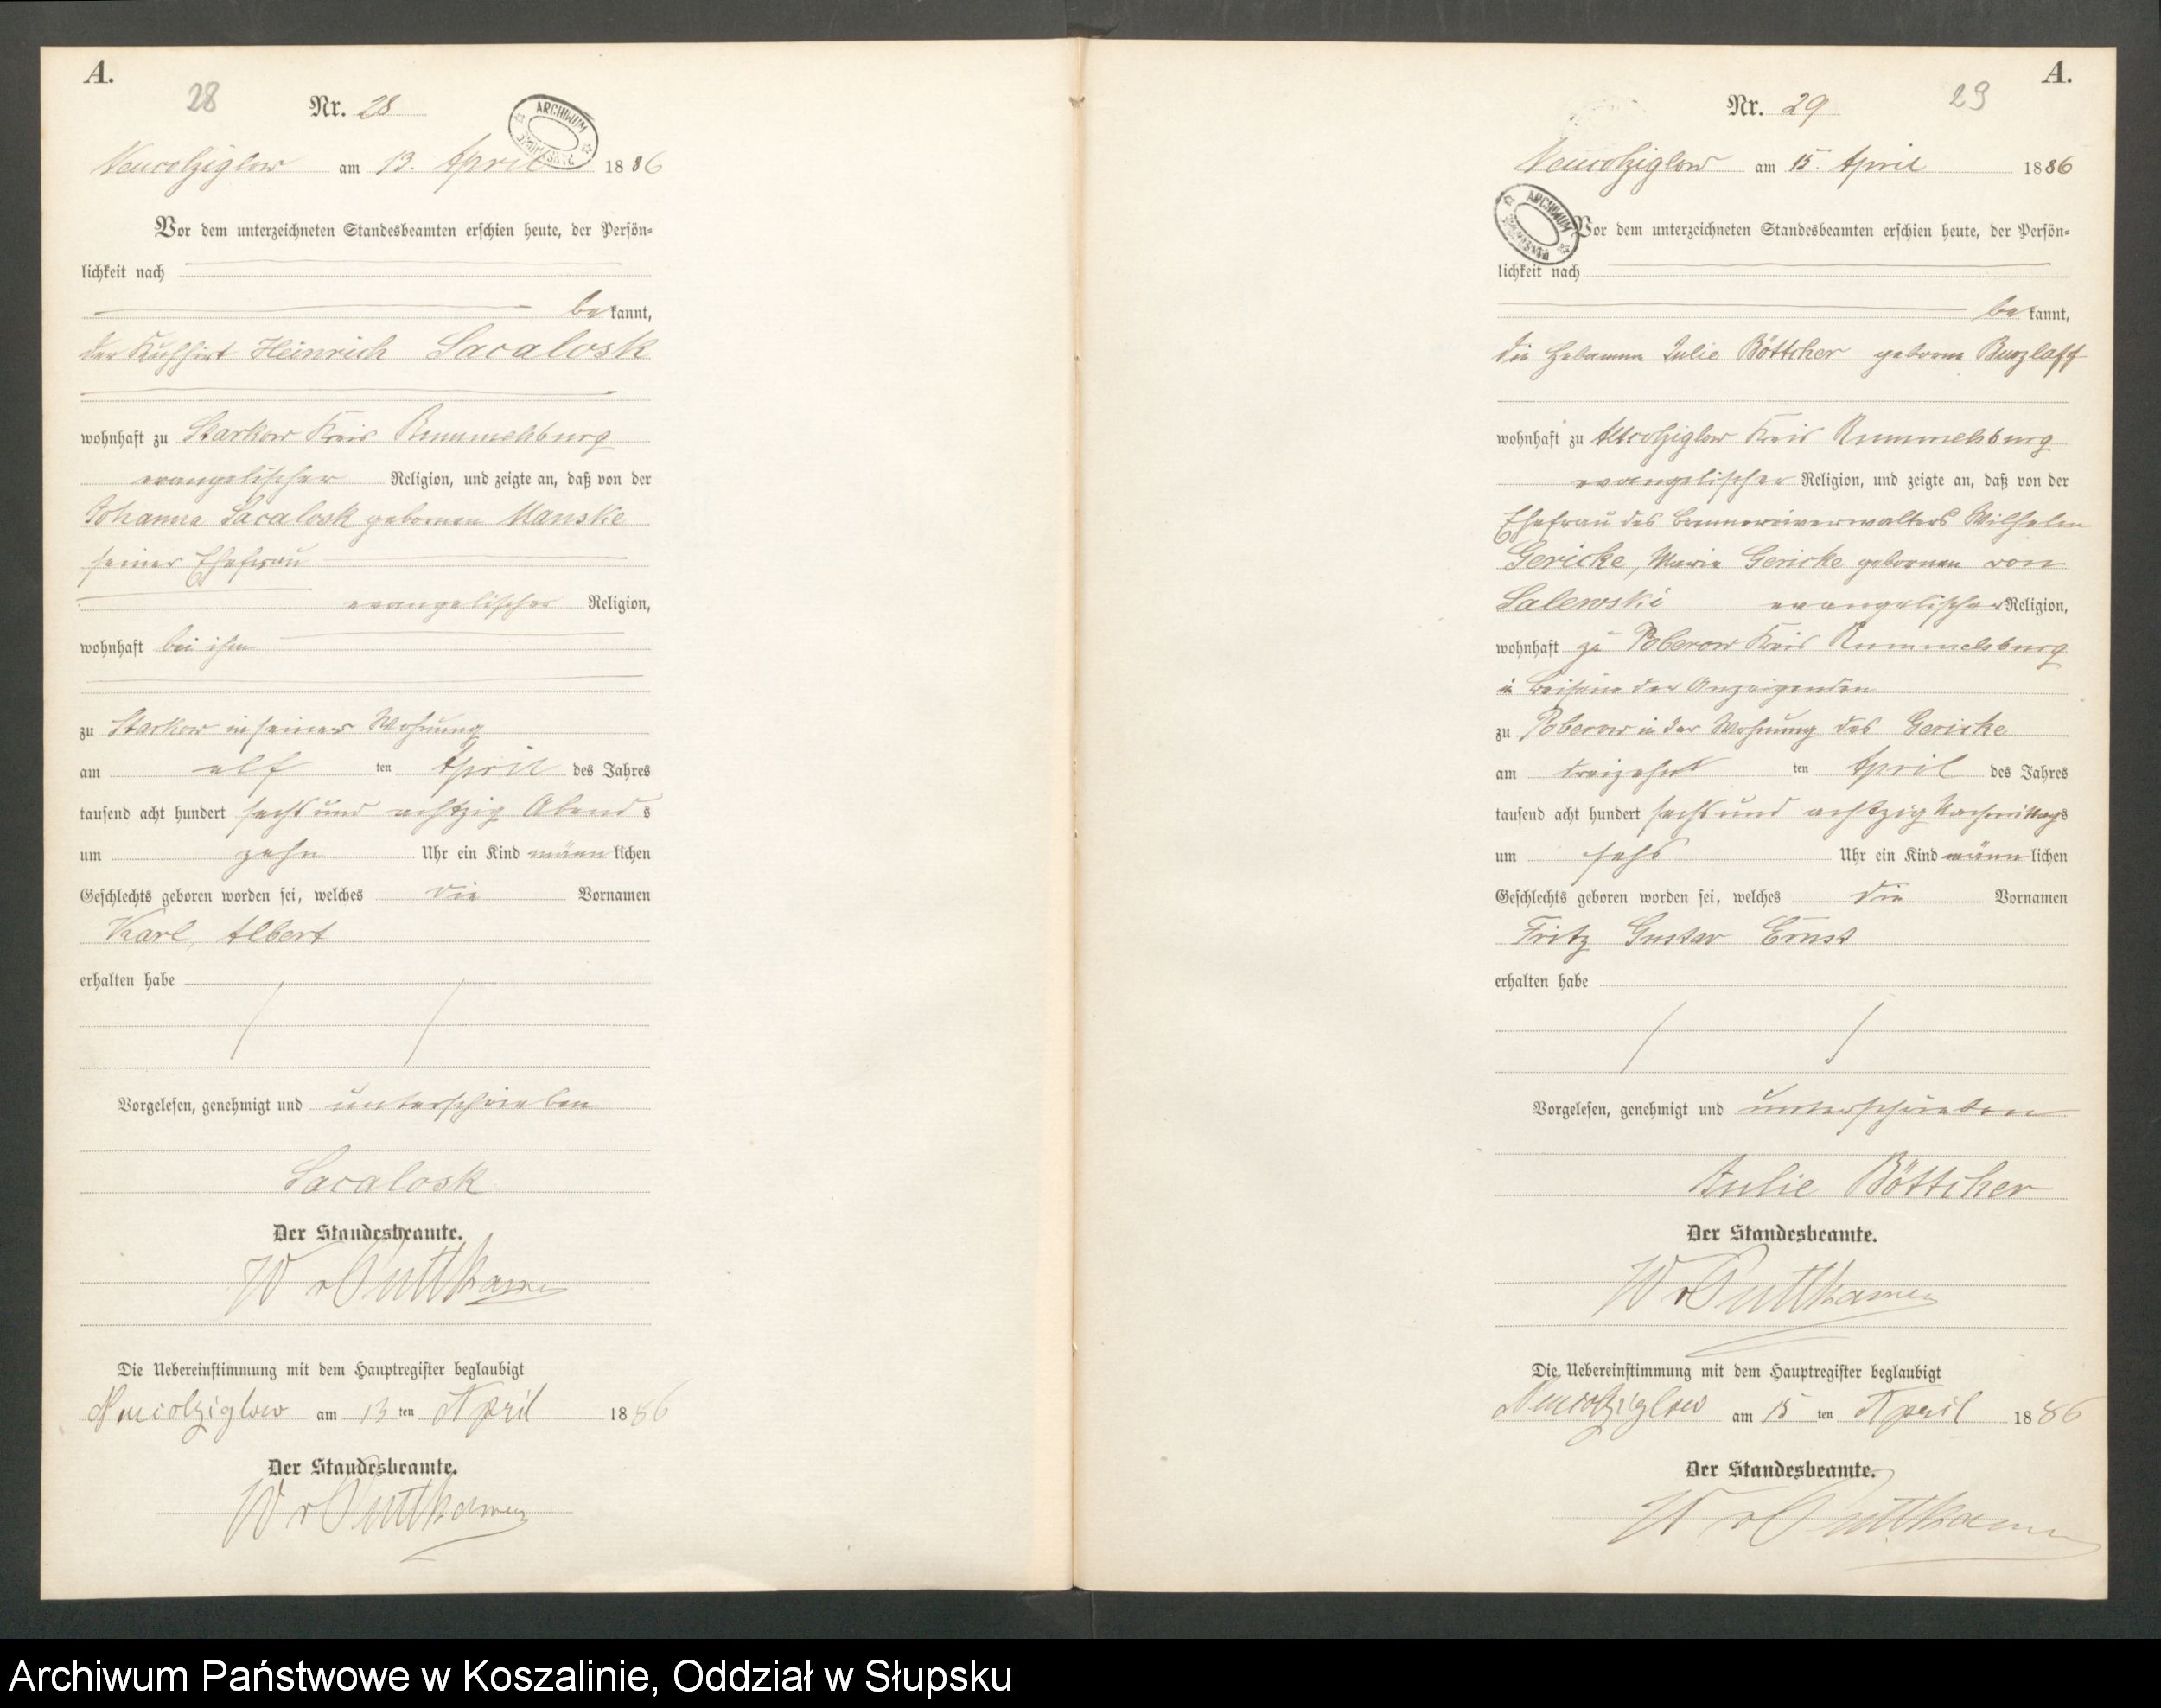 A.
28
Nr. 28
ARCHIWUM
Neucolziglow am 13. April 1886
Vor dem unterzeichneten Standesbeamten erschien heute, der Persön-
lichkeit nach
bekannt,
der Kuhhirt Heinrich Sacalosk
wohnhaft zu Starkow Kreis Rummelsburg
evangelischer Religion, und zeigte an, daß von der
Johanna Sacalosk gebornen Manske
seiner Ehefrau
evangelischer Religion,
wohnhaft bei ihm
zu Starkow in seiner Wohnung
am elf ten April des Jahres
tausend acht hundert sechs und achtzig Abends
um zehn Uhr ein Kind männlichen
Geschlechts geboren worden sei, welches die Vornamen
Karl, Albert
erhalten habe
Vorgelesen, genehmigt und unterschrieben
Sacalosk
Der Standesbeamte.
W v Puttkamer
Die Uebereinstimmung mit dem Hauptregister beglaubigt
Neucolziglow am 13 ten April 1886
Der Standesbeamte.
W v Puttkamer
A.
29
Nr. 29
Neucolziglow am 15. April 1886
ARCHIWUM
Vor dem unterzeichneten Standesbeamten erschien heute, der Persön-
lichkeit nach
bekannt,
die Hebamme Julie Böttcher geborne Burzlaff
wohnhaft zu Altcolziglow Kreis Rummelsburg
evangelischer Religion, und zeigte an, daß von der
Ehefrau des Brennereiverwalters Wilhelm
Gericke, Marie Gericke gebornen von
Salewski evangelischer Religion,
wohnhaft zu Poberow Kreis Rummelsburg
in Beisein der Anzeigenden
zu Poberow in der Wohnung des Gericke
am dreizehn ten April des Jahres
tausend acht hundert sechs und achtzig Nachmittags
um sechs Uhr ein Kind männlichen
Geschlechts geboren worden sei, welches die Vornamen
Fritz Gustav Ernst
erhalten habe
Vorgelesen, genehmigt und unterschrieben
Julie Böttcher
Der Standesbeamte.
W v Puttkamer
Die Uebereinstimmung mit dem Hauptregister beglaubigt
Neucolziglow am 15 ten April 1886
Der Standesbeamte.
W v Puttkamer
Archiwum Państwowe w Koszalinie, Oddział w Słupsku